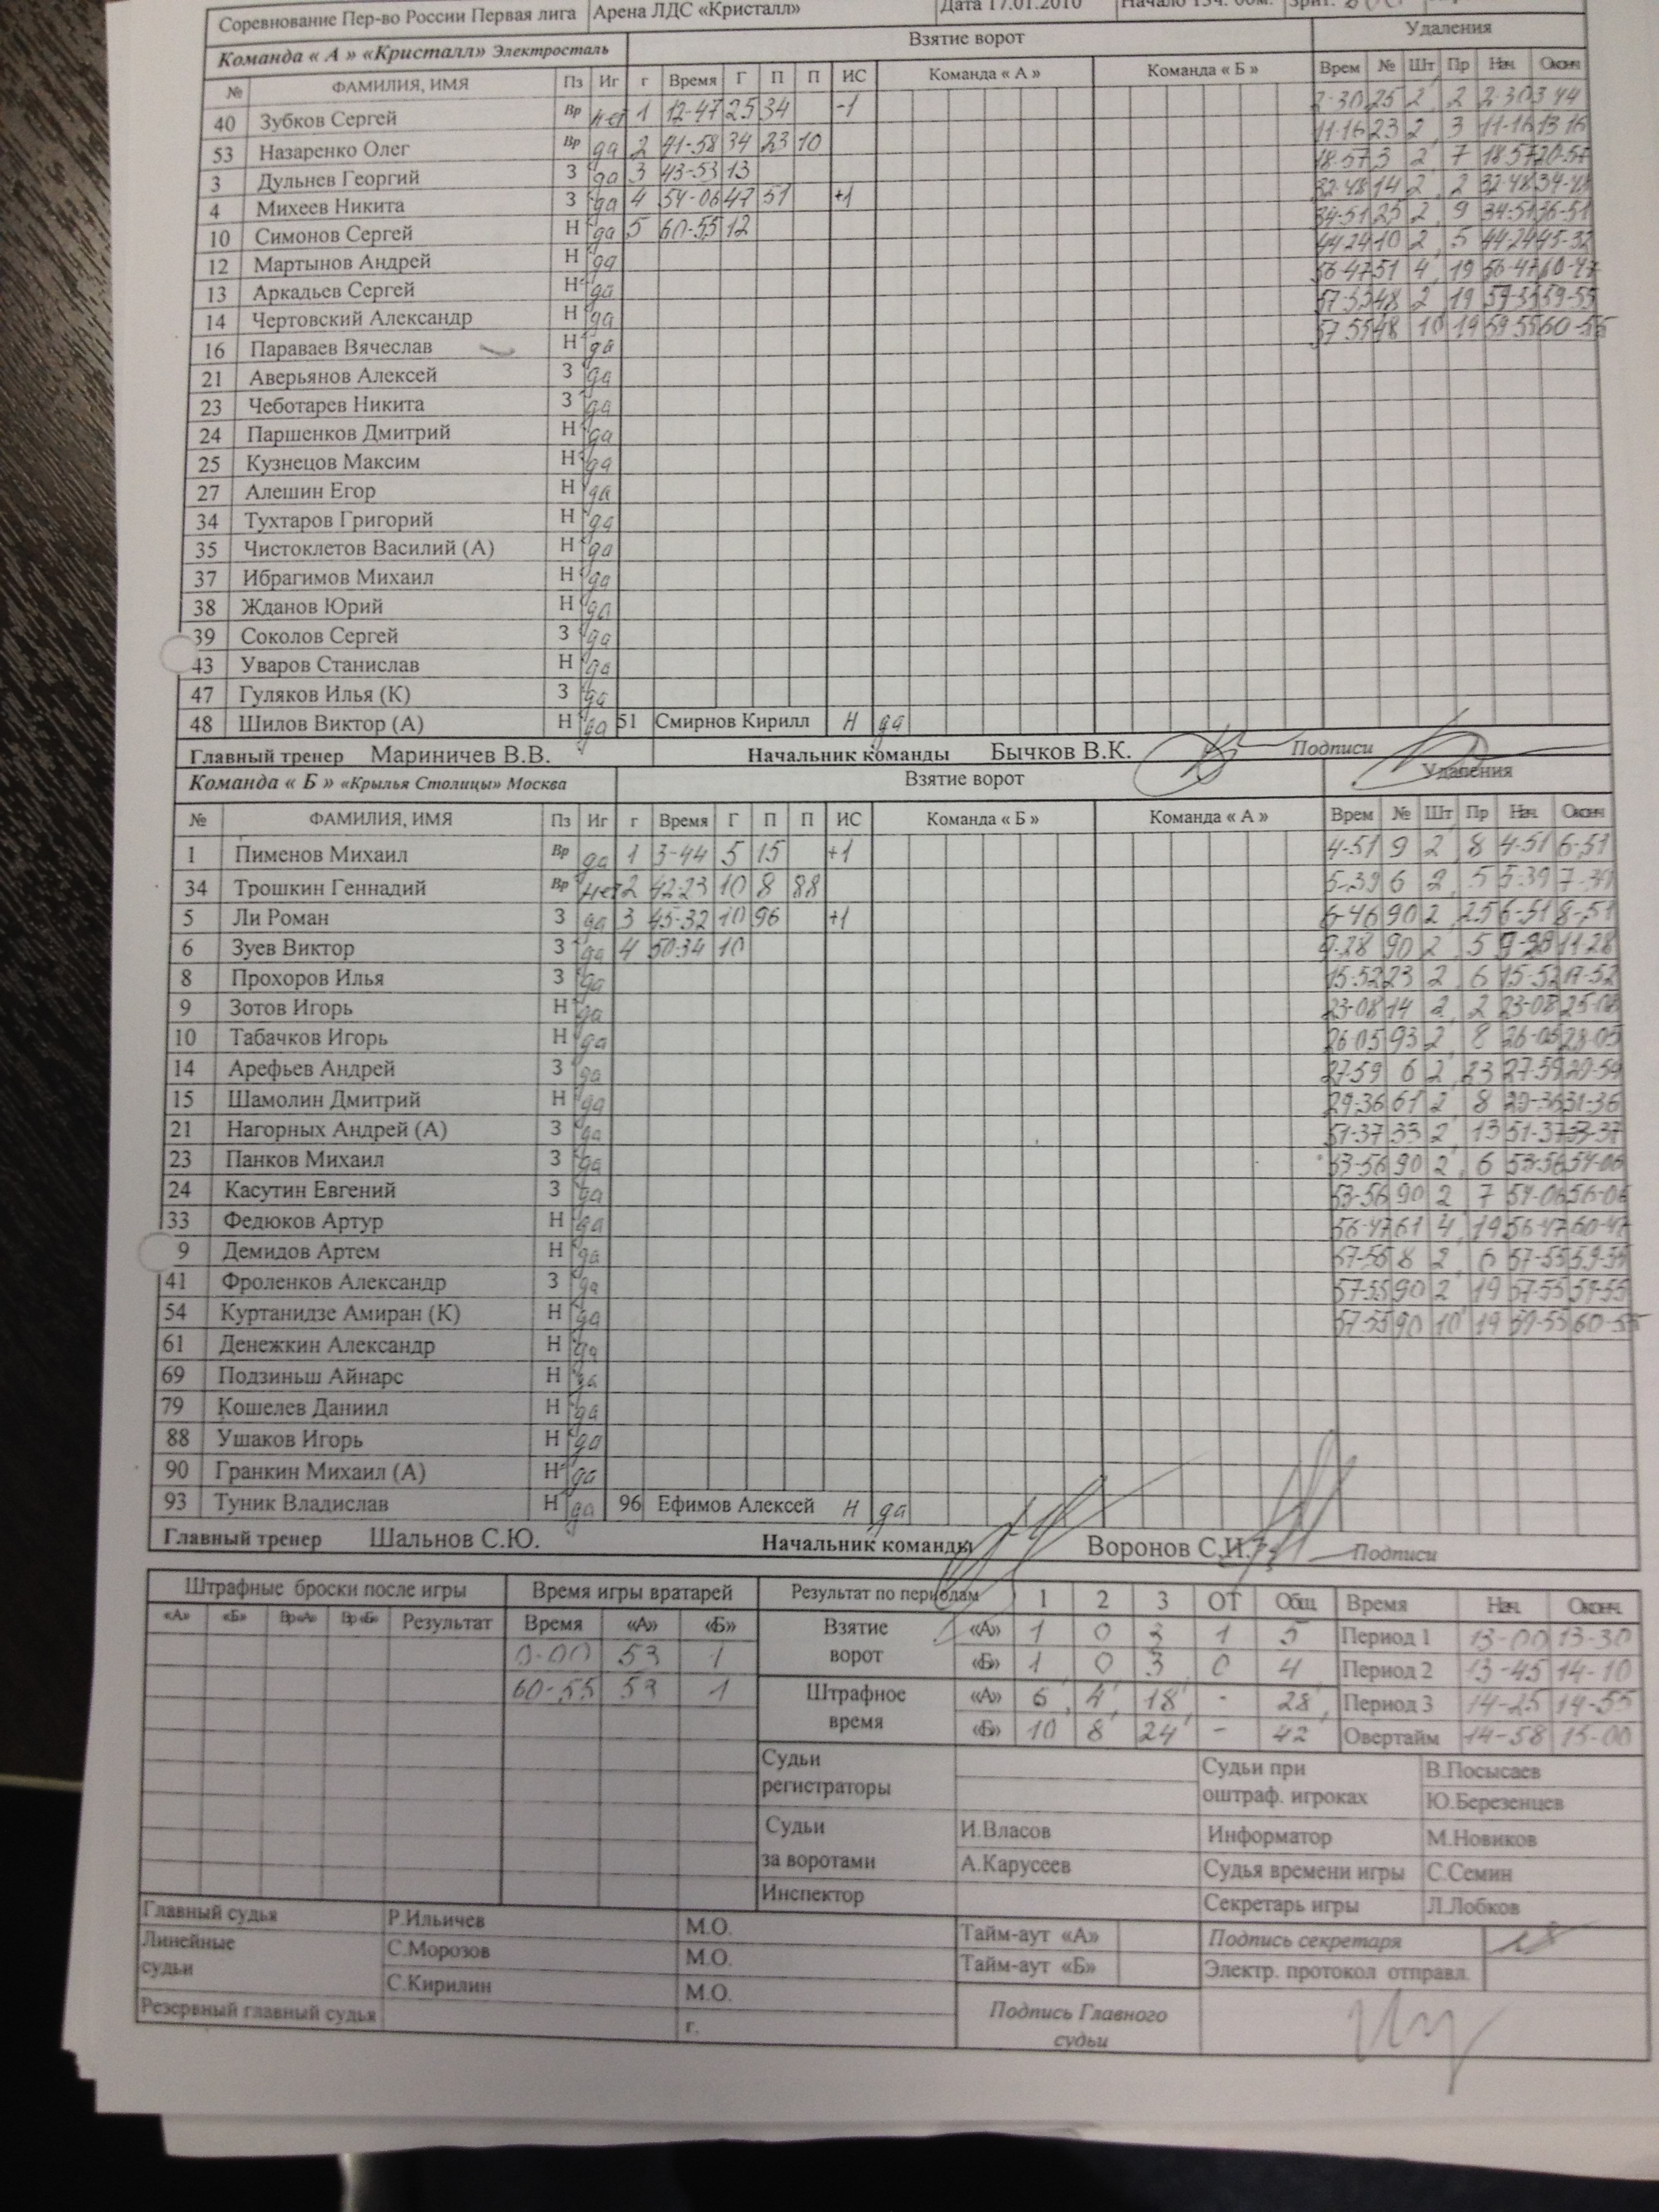 Соревнование Пер-во России Первая лига Арена ЛДС «Кристалл» Дата 17.01.2010 Начало 13ч. 00м. Зрит.
Команда « А » «Кристалл» Электросталь Взятие ворот Удаления
№ ФАМИЛИЯ, ИМЯ Пз Иг г Время Г П П ИС Команда « А » Команда « Б » Врем № Шт Пр Нач Оконч
40 Зубков Сергей Вр нет 1 12-47 25 34 -1 2-30 25 2 2 2-30 3 44
53 Назаренко Олег Вр да 2 41-58 34 23 10 11-16 23 2 3 11-16 13 16
3 Дульнев Георгий З да 3 43-53 13 18-57 3 2 7 18-57 20-57
4 Михеев Никита З да 4 54-06 47 51 +1 32-48 14 2 2 32-48 34-48
10 Симонов Сергей Н да 5 60-55 12 34-51 25 2 9 34-51 36-51
12 Мартынов Андрей Н да 44 24 10 2 5 44 24 45-32
13 Аркадьев Сергей Н да 56-47 51 4 19 56-47 60-47
14 Чертовский Александр Н да 48 2 19 59-55
16 Параваев Вячеслав Н да 57 55 48 10 19 59 55 60-55
21 Аверьянов Алексей З да
23 Чеботарев Никита З да
24 Паршенков Дмитрий Н да
25 Кузнецов Максим Н да
27 Алешин Егор Н да
34 Тухтаров Григорий Н да
35 Чистоклетов Василий (А) Н да
37 Ибрагимов Михаил Н да
38 Жданов Юрий Н да
39 Соколов Сергей З да
43 Уваров Станислав Н да
47 Гуляков Илья (К) З да
48 Шилов Виктор (А) Н да 51 Смирнов Кирилл Н да
Главный тренер Мариничев В.В. Начальник команды Бычков В.К. Подписи
Команда « Б » «Крылья Столицы» Москва Взятие ворот Удаления
№ ФАМИЛИЯ, ИМЯ Пз Иг г Время Г П П ИС Команда « Б » Команда « А » Врем № Шт Пр Нач Оконч
1 Пименов Михаил Вр да 1 3-44 5 15 +1 4-51 9 2 8 4-51 6-51
34 Трошкин Геннадий Вр нет 2 42-23 10 8 88 5-39 6 2 5 5-39 7-39
5 Ли Роман З да 3 45-32 10 96 +1 6-46 90 2 25 6-51 8-51
6 Зуев Виктор З да 4 50-34 10 9-28 90 2 5 9-28 11-28
8 Прохоров Илья З да 15-52 23 2 6 15-52 17-52
9 Зотов Игорь Н да 23-08 14 2 2 23-08 25-08
10 Табачков Игорь Н да 26-05 93 2 8 26-05 28-05
14 Арефьев Андрей З да 27-59 6 2 23 27-59 29-59
15 Шамолин Дмитрий Н да 29-36 61 2 8 29-36 31-36
21 Нагорных Андрей (А) З да 51-37 33 2 13 51-37 53-37
23 Панков Михаил З да 53-56 90 2 6 53-56 54-06
24 Касутин Евгений З да 53-56 90 2 7 54-06 56-06
33 Федюков Артур Н да 56-47 61 4 19 56-47 60-47
9 Демидов Артем Н да 57-55 8 2 6 57-55 59-55
41 Фроленков Александр З да 57-55 90 2 19 57-55 59-55
54 Куртанидзе Амиран (К) Н да 57-55 90 10 19 59-55 60-55
61 Денежкин Александр Н да
69 Подзиньш Айнарс Н да
79 Кошелев Даниил Н да
88 Ушаков Игорь Н да
90 Гранкин Михаил (А) Н да
93 Туник Владислав Н да 96 Ефимов Алексей Н да
Главный тренер Шальнов С.Ю. Начальник команды Воронов С.И. Подписи
Штрафные броски после игры Время игры вратарей Результат по периодам 1 2 3 ОТ Общ Время Нач. Оконч.
«А» «Б» Вр«А» Вр«Б» Результат Время «А» «Б» Взятие ворот «А» 1 0 3 1 5 Период 1 13-00 13-30
0-00 53 1 «Б» 1 0 3 0 4 Период 2 13-45 14-10
60-55 53 1 Штрафное время «А» 6 4 18 - 28 Период 3 14-25 14-55
«Б» 10 8 24 - 42 Овертайм 14-58 15-00
Судьи регистраторы Судьи при оштраф. игроках В.Посысаев
Ю.Березенцев
Судьи за воротами И.Власов Информатор М.Новиков
А.Карусеев Судья времени игры С.Семин
Инспектор Секретарь игры Л.Лобков
Главный судья Р.Ильичев М.О. Тайм-аут «А» Подпись секретаря
Линейные судьи С.Морозов М.О. Тайм-аут «Б» Электр. протокол отправл.
С.Кирилин М.О. Подпись Главного судьи
Резервный главный судья г.